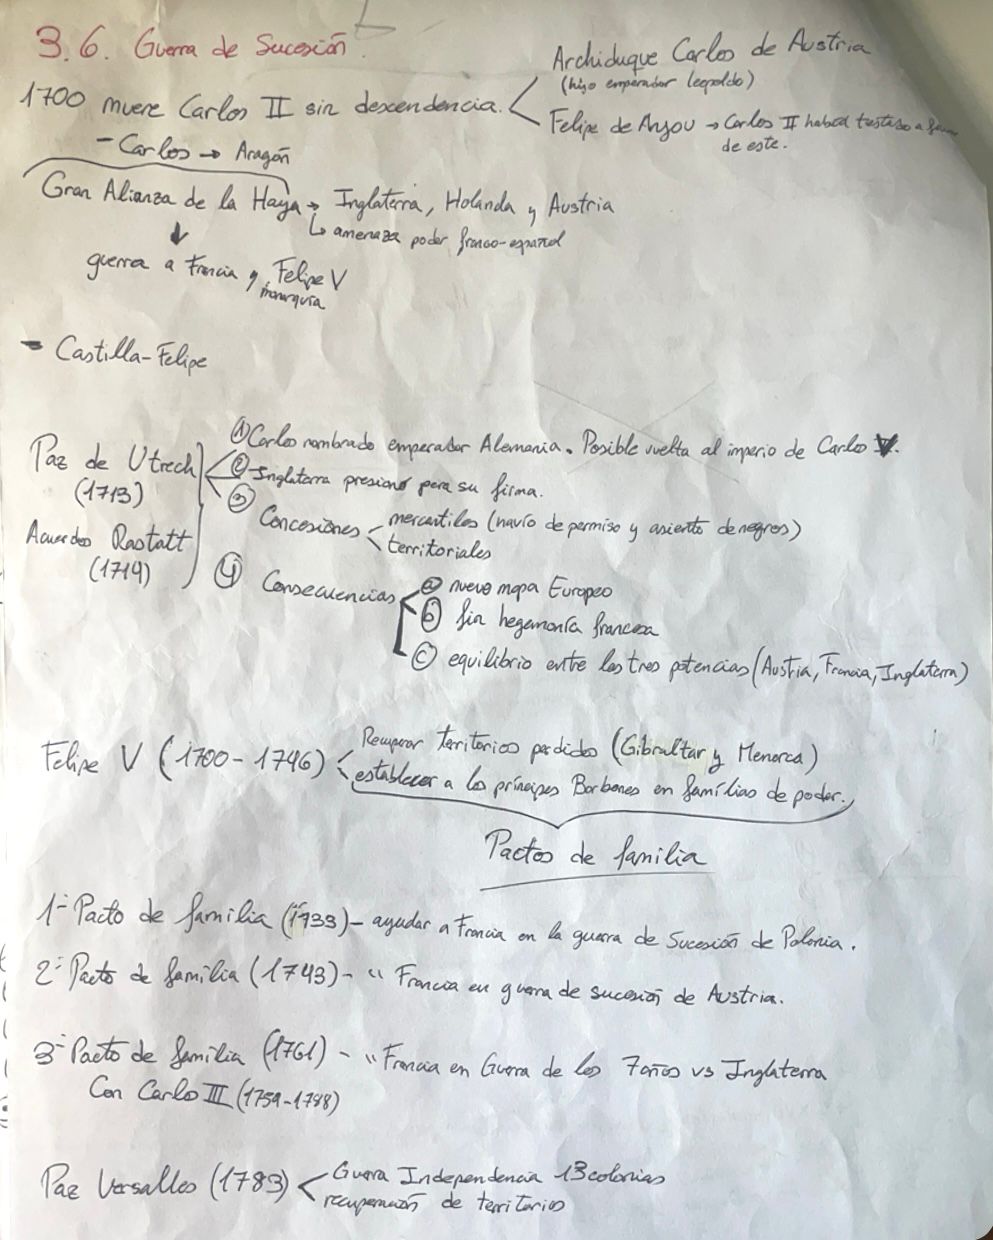 3.6. Guerra de Sucesión.
1700 muere Carlos II sin descendencia.
Archiduque Carlos de Austria
(hijo emperador leopoldo)
Felipe de Anjou → Carlos II había testado a
de este.
- Carlos → Aragón
Gran Alianza de la Haya → Inglaterra, Holanda y Austria
↳ amenaza poder franco-español
↓
guerra a Francia y Felipe V
monarquía
- Castilla-Felipe
Paz de Utrech
(1713)
Acuerdos Rastatt
(1714)
① Carlos nombrado emperador Alemania. Posible vuelta al imperio de Carlos V.
② Inglaterra presiono para su firma.
③ Concesiones
mercantiles (navío de permiso y asiento de negros)
territoriales
④ Consecuencias
ⓐ nuevo mapa Europeo
ⓑ fin hegemonía francesa
ⓒ equilibrio entre las tres potencias (Austria, Francia, Inglaterra)
Felipe V (1700-1746)
Recuperar territorios perdidos (Gibraltar y Menorca)
establecer a los príncipes Borbones en famílias de poder.
Pactos de familia
1- Pacto de familia (1733) - ayudar a Francia en la guerra de Sucesión de Polonia.
2- Pacto de familia (1743) - " Francia en guerra de sucesión de Austria.
3- Pacto de familia (1761) - " Francia en Guerra de los 7 años vs Inglaterra
Con Carlo III (1759-1788)
Paz Versalles (1783)
Guerra Independencia 13 colonias
recuperación de territorios